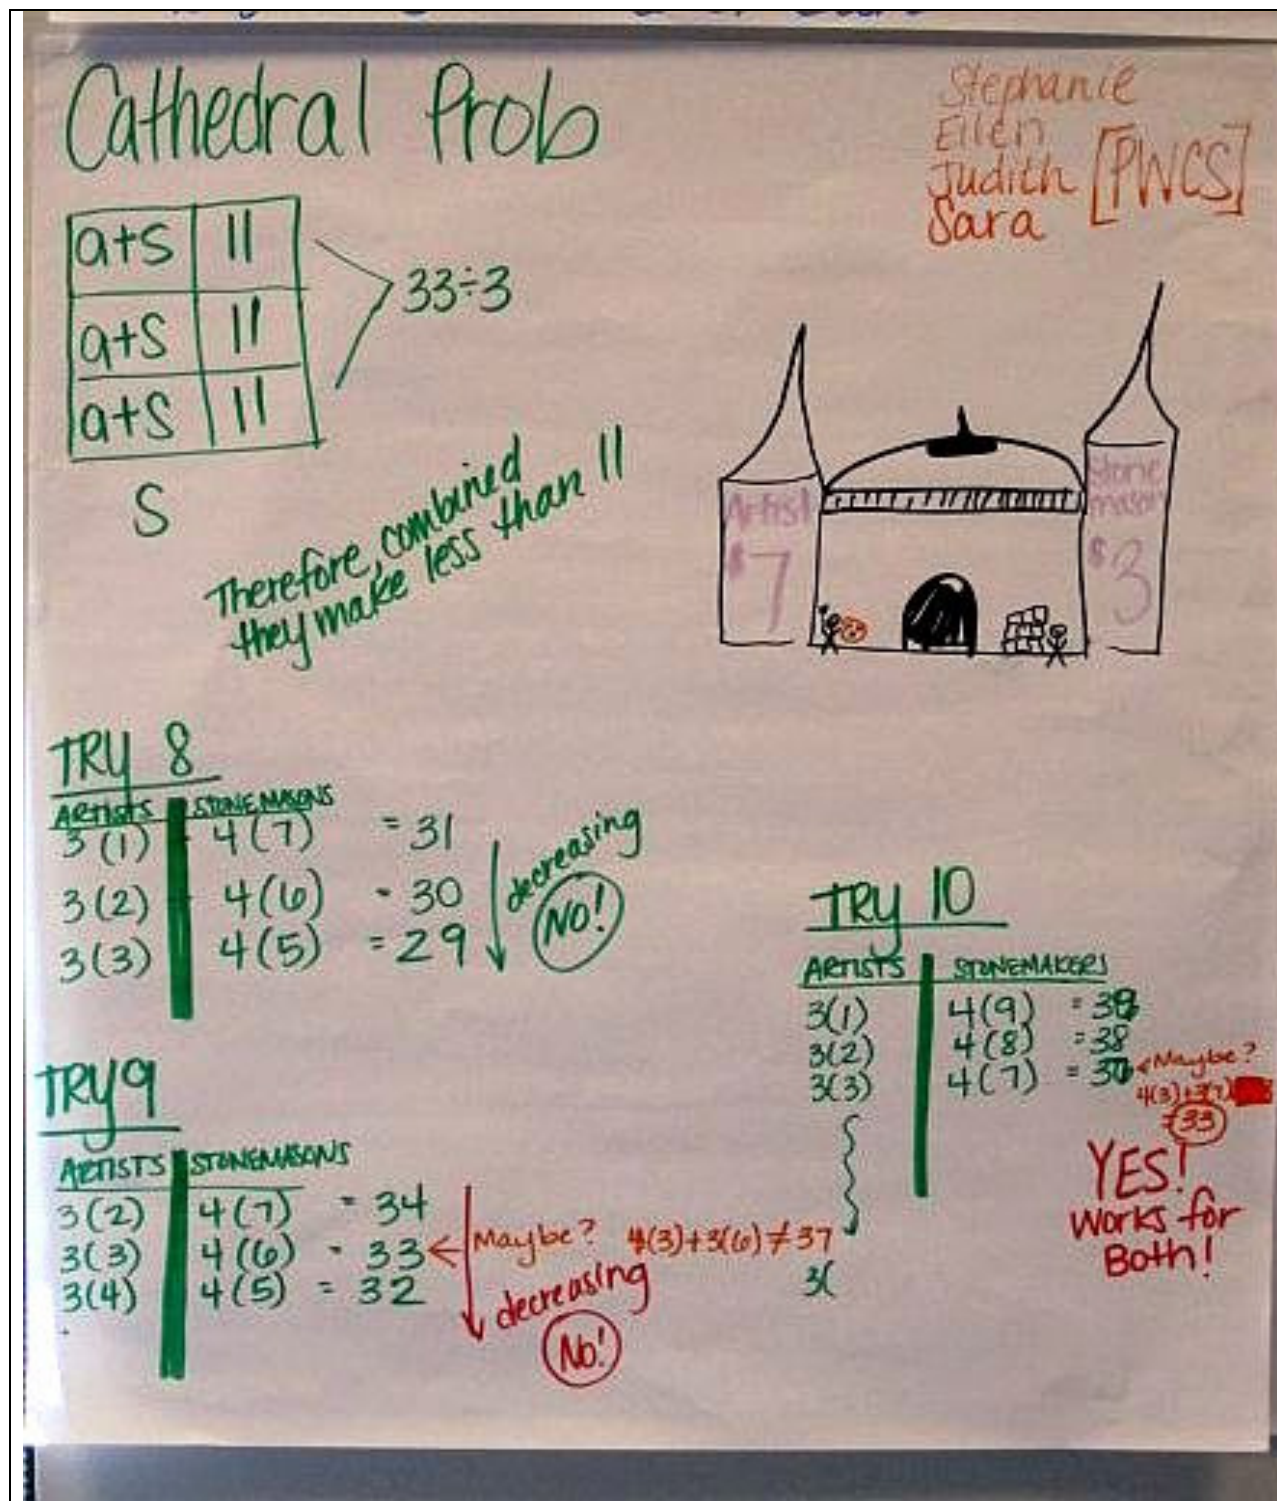 Cathedral Prob
Stephanie
Ellen
Judith [PWCS]
Sara
a+s 11
a+s 11
a+s 11
33÷3
S
Therefore, combined
they make less than 11
Artist
$7
Stone
mason
$3
TRY 8
ARTISTS STONEMASONS
3(1) 4(7) = 31
3(2) 4(6) = 30
3(3) 4(5) = 29
decreasing
No!
TRY 9
ARTISTS STONEMASONS
3(2) 4(7) = 34
3(3) 4(6) = 33
3(4) 4(5) = 32
Maybe? 4(3)+3(6)≠37
decreasing
No!
TRY 10
ARTISTS STONEMAKERS
3(1) 4(9)
3(2) 4(8) = 38
3(3) 4(7)
Maybe?
4(3)+3(7)
=33
3(
YES!
Works for
Both!